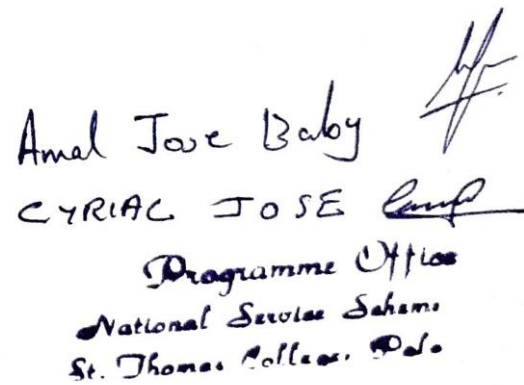 Amal Jose Baby
CYRIAC JOSE
Programme Office
National Service Scheme
St. Thomas College, Pala